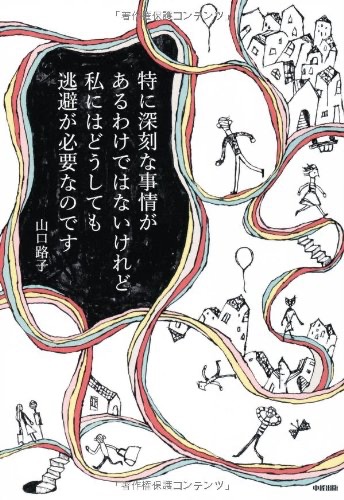 「著作権保護コンテンツ」
特に深刻な事情が
あるわけではないけれど
私にはどうしても
逃避が必要なのです
山口路子
中経出版
「著作権保護コンテンツ」